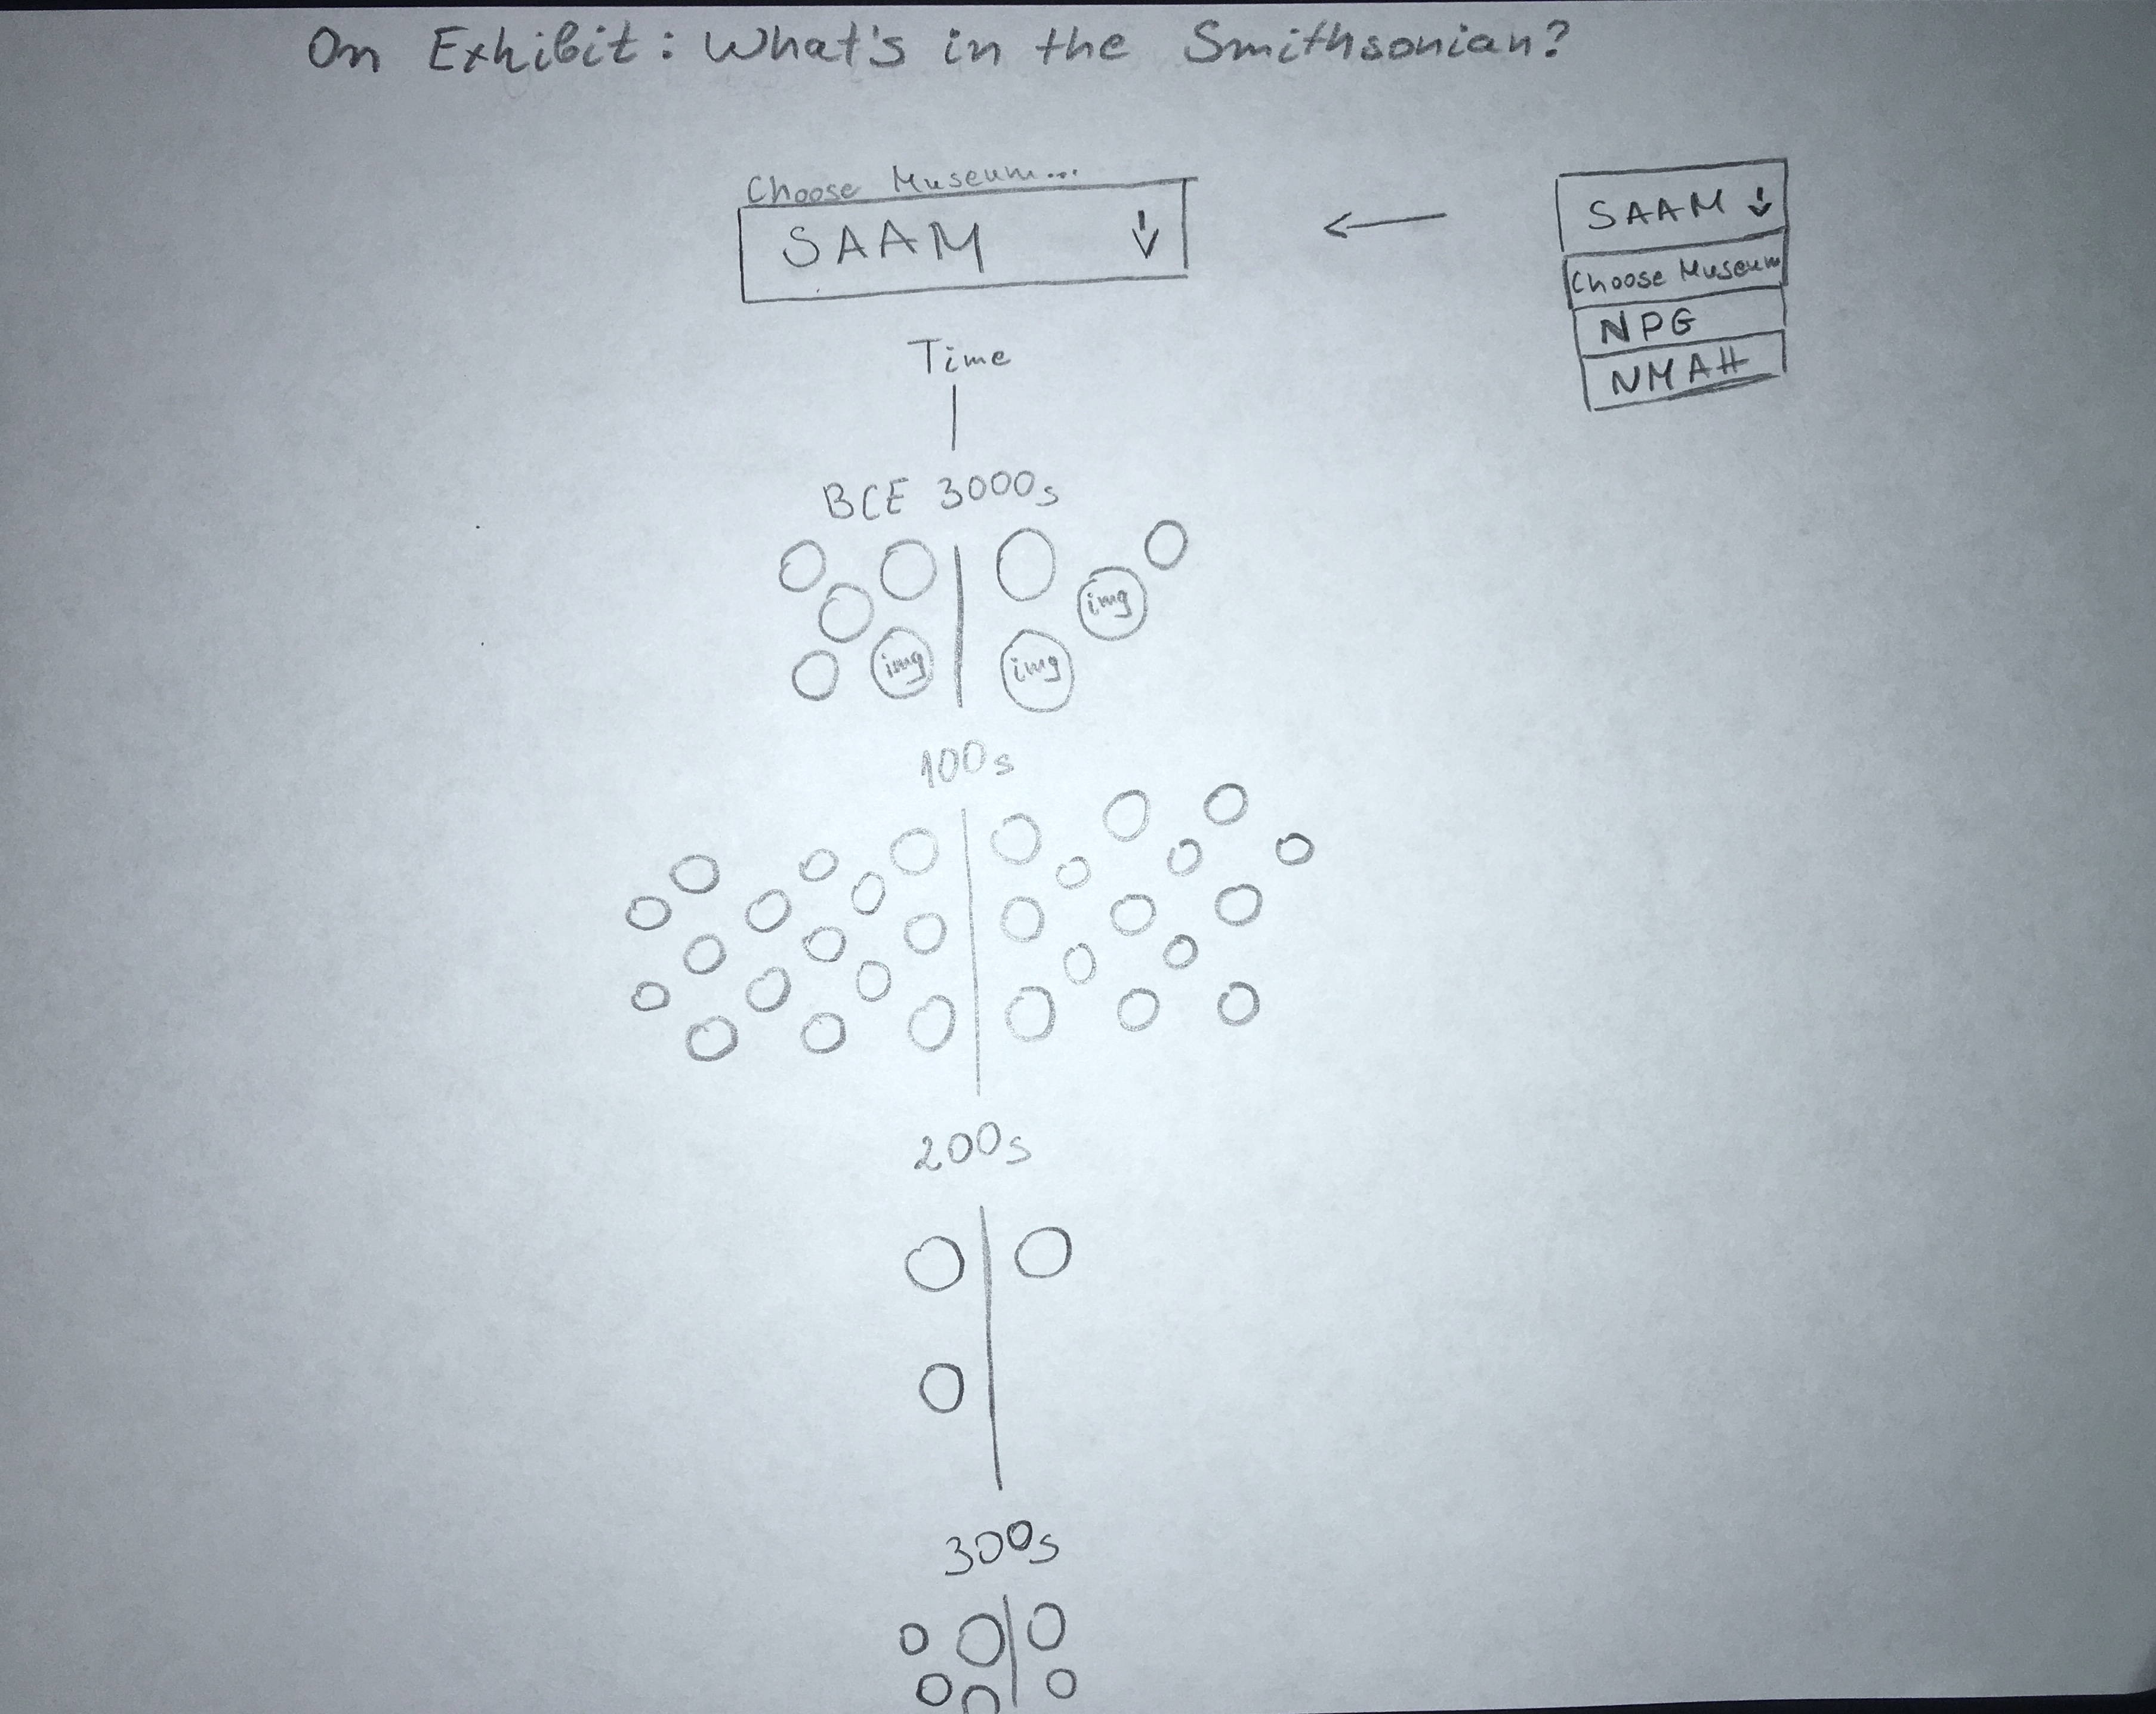 On Exhibit: What's in the Smithsonian?
Choose Museum...
SAAM
SAAM
Choose Museum
NPG
NMAH
Time
BCE 3000s
img
img
img
100s
200s
300s